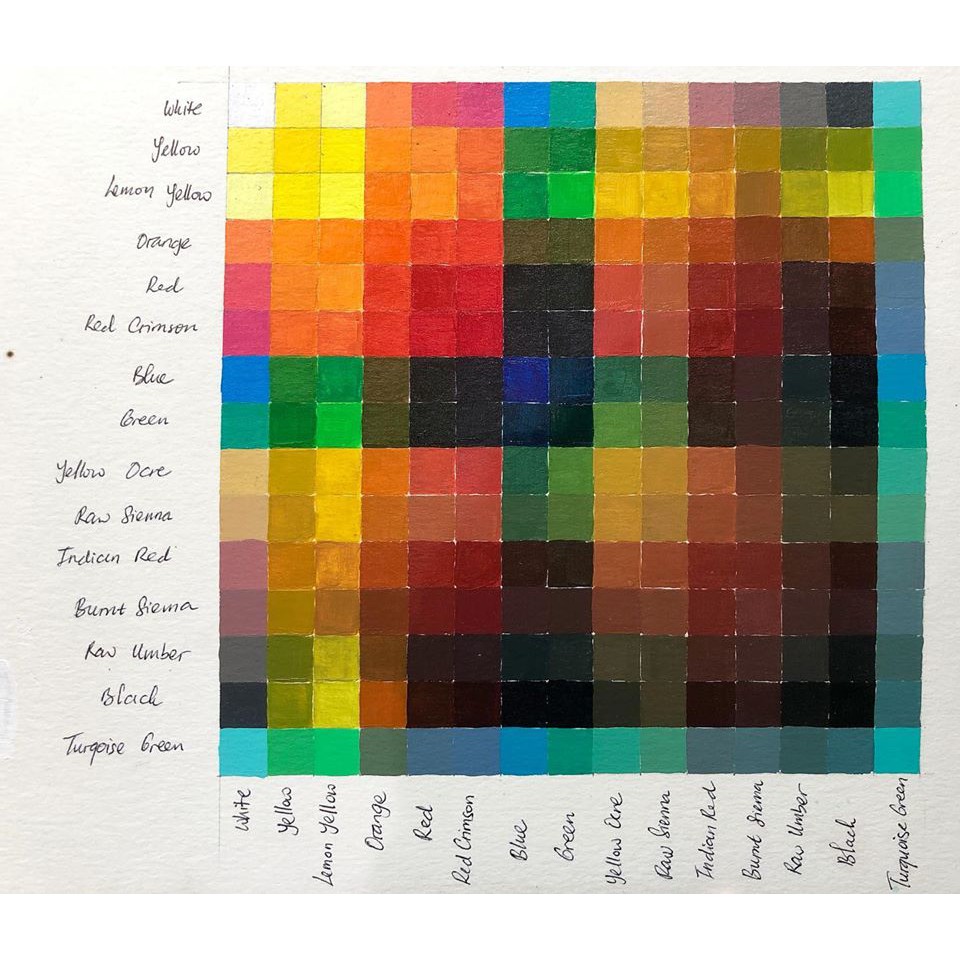 White
Yellow
Lemon Yellow
Orange
Red
Red Crimson
Blue
Green
Yellow Ocre
Raw Sienna
Indian Red
Burnt Sienna
Raw Umber
Black
Turqoise Green
White
Yellow
Lemon Yellow
Orange
Red
Red Crimson
Blue
Green
Yellow Ocre
Raw Sienna
Indian Red
Burnt Sienna
Raw Umber
Black
Turquoise Green